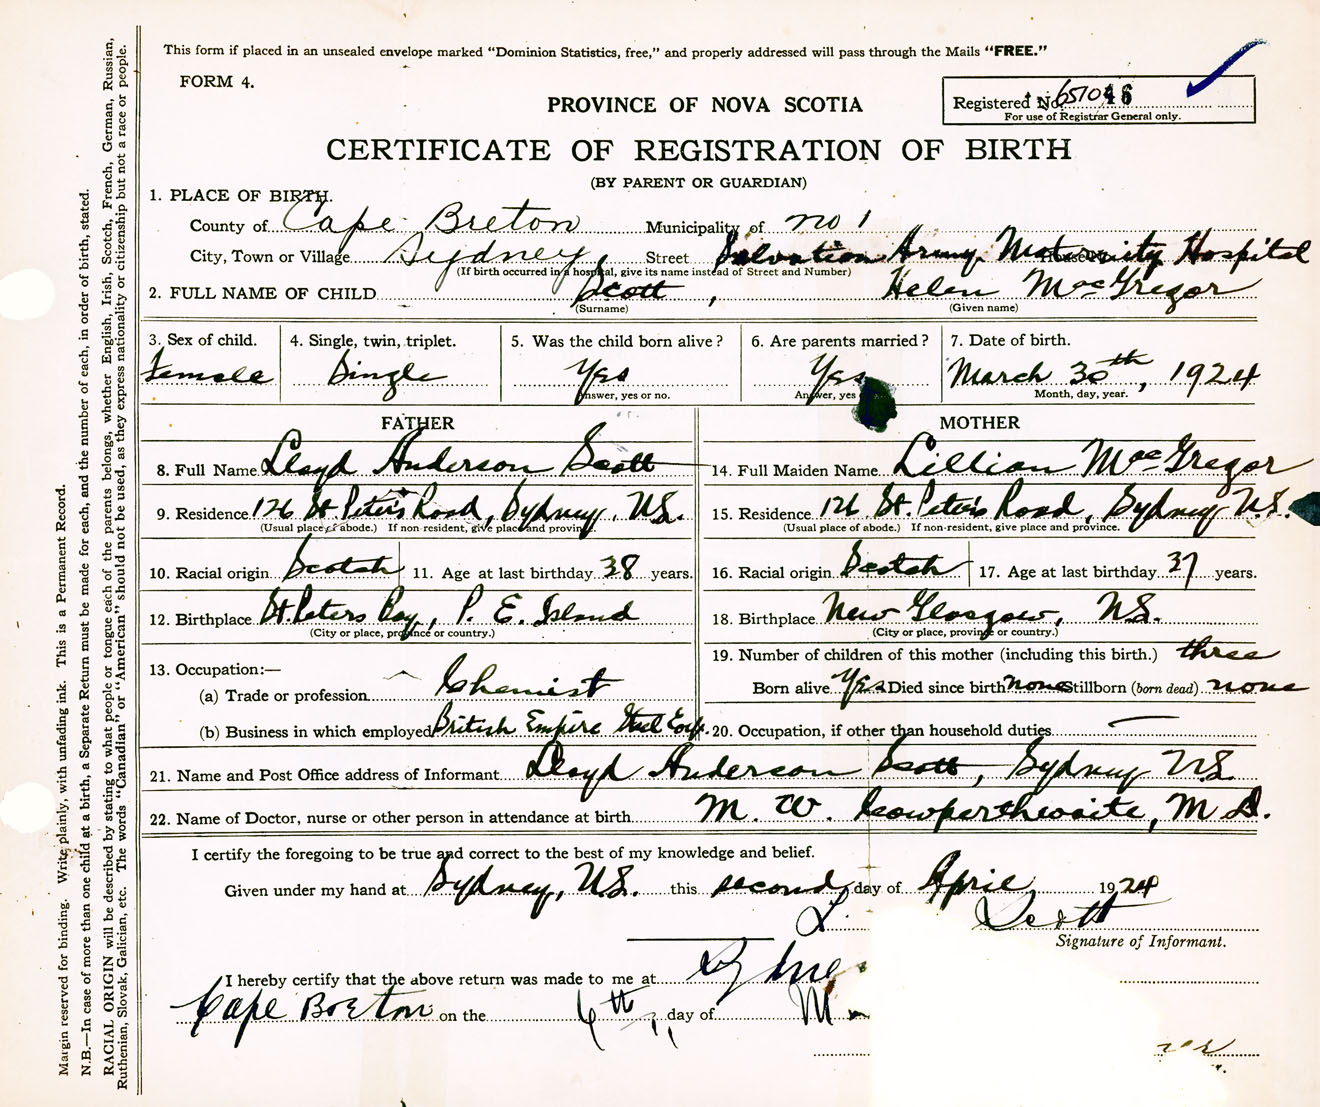 This form if placed in an unsealed envelope marked "Dominion Statistics, free," and properly addressed will pass through the Mails "FREE."
FORM 4.
Registered No.
For use of Registrar General only.
PROVINCE OF NOVA SCOTIA
CERTIFICATE OF REGISTRATION OF BIRTH
(BY PARENT OR GUARDIAN)
1. PLACE OF BIRTH.
County of Cape Breton Municipality of No 1
City, Town or Village Sydney Street Salvation Army Maternity Hospital
(If birth occurred in a hospital, give its name instead of Street and Number)
2. FULL NAME OF CHILD Scott, Helen MacGregor
(Surname) (Given name)
3. Sex of child. 4. Single, twin, triplet. 5. Was the child born alive? 6. Are parents married? 7. Date of birth.
female Single Yes Yes March 30th, 1924
Answer, yes or no. Answer, yes Month, day, year.
FATHER MOTHER
8. Full Name Lloyd Anderson Scott 14. Full Maiden Name Lillian MacGregor
9. Residence 126 St. Peter's Road, Sydney, N.S. 15. Residence 126 St. Peter's Road, Sydney N.S.
(Usual place of abode.) If non-resident, give place and province. (Usual place of abode.) If non-resident, give place and province.
10. Racial origin Scotch 11. Age at last birthday 38 years. 16. Racial origin Scotch 17. Age at last birthday 37 years.
12. Birthplace St. Peters Bay, P. E. Island 18. Birthplace New Glasgow, N.S.
(City or place, province or country.) (City or place, province or country.)
13. Occupation:— 19. Number of children of this mother (including this birth.) three
(a) Trade or profession Chemist Born alive Yes Died since birth none Stillborn (born dead) none
(b) Business in which employed British Empire Steel Corp. 20. Occupation, if other than household duties —
21. Name and Post Office address of Informant Lloyd Anderson Scott, Sydney N.S.
22. Name of Doctor, nurse or other person in attendance at birth M. W. Cowperthwaite, M D.
I certify the foregoing to be true and correct to the best of my knowledge and belief.
Given under my hand at Sydney, N.S. this second day of April 1924
L. Scott
Signature of Informant.
I hereby certify that the above return was made to me at
Cape Breton on the 6th day of
Margin reserved for binding. Write plainly, with unfading ink. This is a Permanent Record.
N.B.—In case of more than one child at a birth, a Separate Return must be made for each, and the number of each, in order of birth, stated.
RACIAL ORIGIN will be described by stating to what people or tongue each of the parents belongs, whether English, Irish, Scotch, French, German, Russian,
Ruthenian, Slovak, Galician, etc. The words "Canadian" or "American" should not be used, as they express nationality or citizenship but not a race or people.